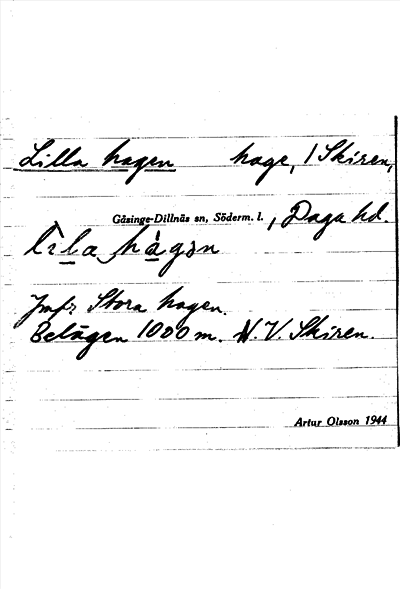 Lilla hagen hage, / Skiren,
Gåsinge-Dillnäs sn, Söderm. l., Daga hd.
lila hágən
Jmfr Stora hagen.
Belägen 1000 m. N.V. Skiren.
Artur Olsson 1944